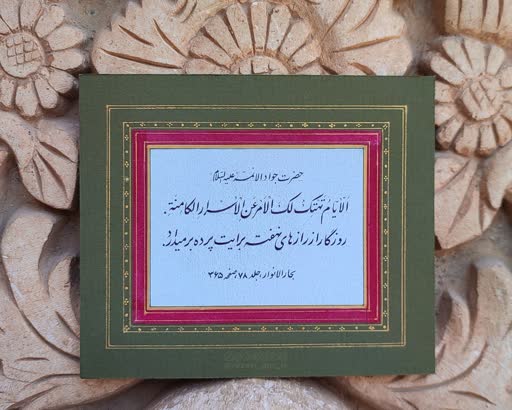 حضرت جواد الائمه علیه‌السلام:
الأیام تهتک لک الأمر عن الأسرار الکامنة.
روزگار از رازهای نهفته برایت پرده برمیدارد.
بحارالانوار، جلد ۷۸، صفحه ۳۶۵